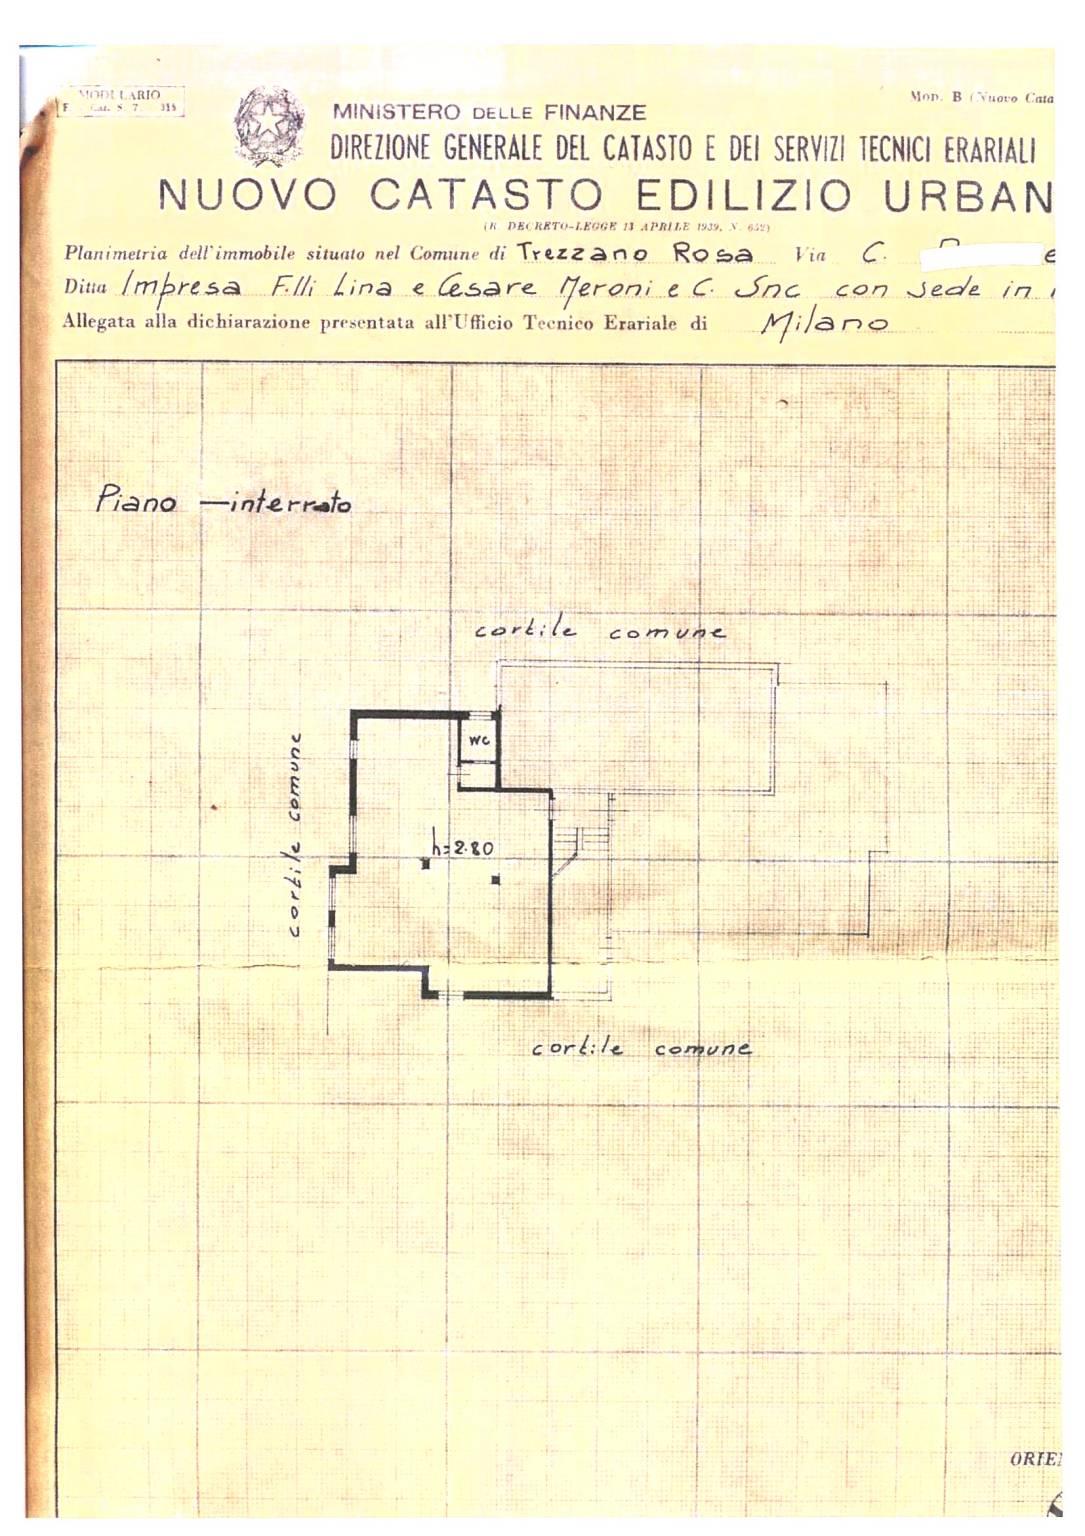 MODULARIO
F. Cat. S. 7. 315
Mod. B (Nuovo Cata
MINISTERO DELLE FINANZE
DIREZIONE GENERALE DEL CATASTO E DEI SERVIZI TECNICI ERARIALI
NUOVO CATASTO EDILIZIO URBAN
(R. DECRETO-LEGGE 13 APRILE 1939, N. 652)
Planimetria dell'immobile situato nel Comune di Trezzano Rosa Via C.
Ditta Impresa F.lli Lina e Cesare Meroni e C. Snc con sede in
Allegata alla dichiarazione presentata all'Ufficio Tecnico Erariale di Milano
Piano interrato
cortile comune
WC
cortile comune
h=2.80
cortile comune
ORIE